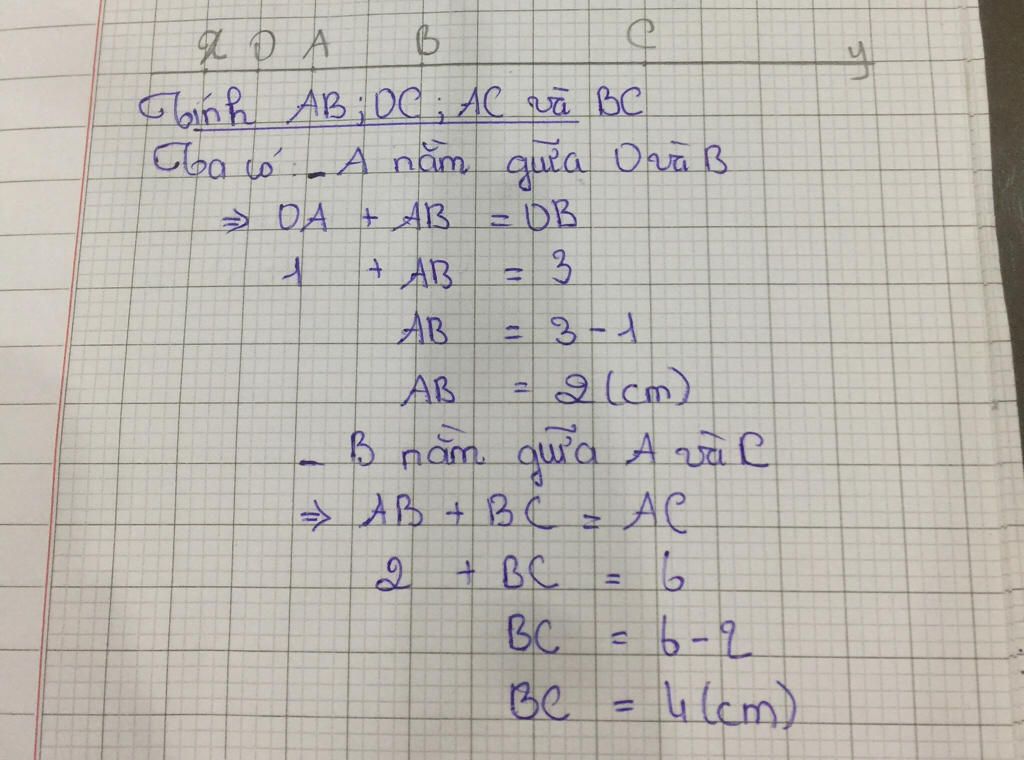 x O A B C y
Tính AB; OC; AC và BC
Ta có: - A nằm giữa O và B
⇒ OA + AB = OB
1 + AB = 3
AB = 3 - 1
AB = 2 (cm)
- B nằm giữa A và C
⇒ AB + BC = AC
2 + BC = 6
BC = 6 - 2
BC = 4 (cm)